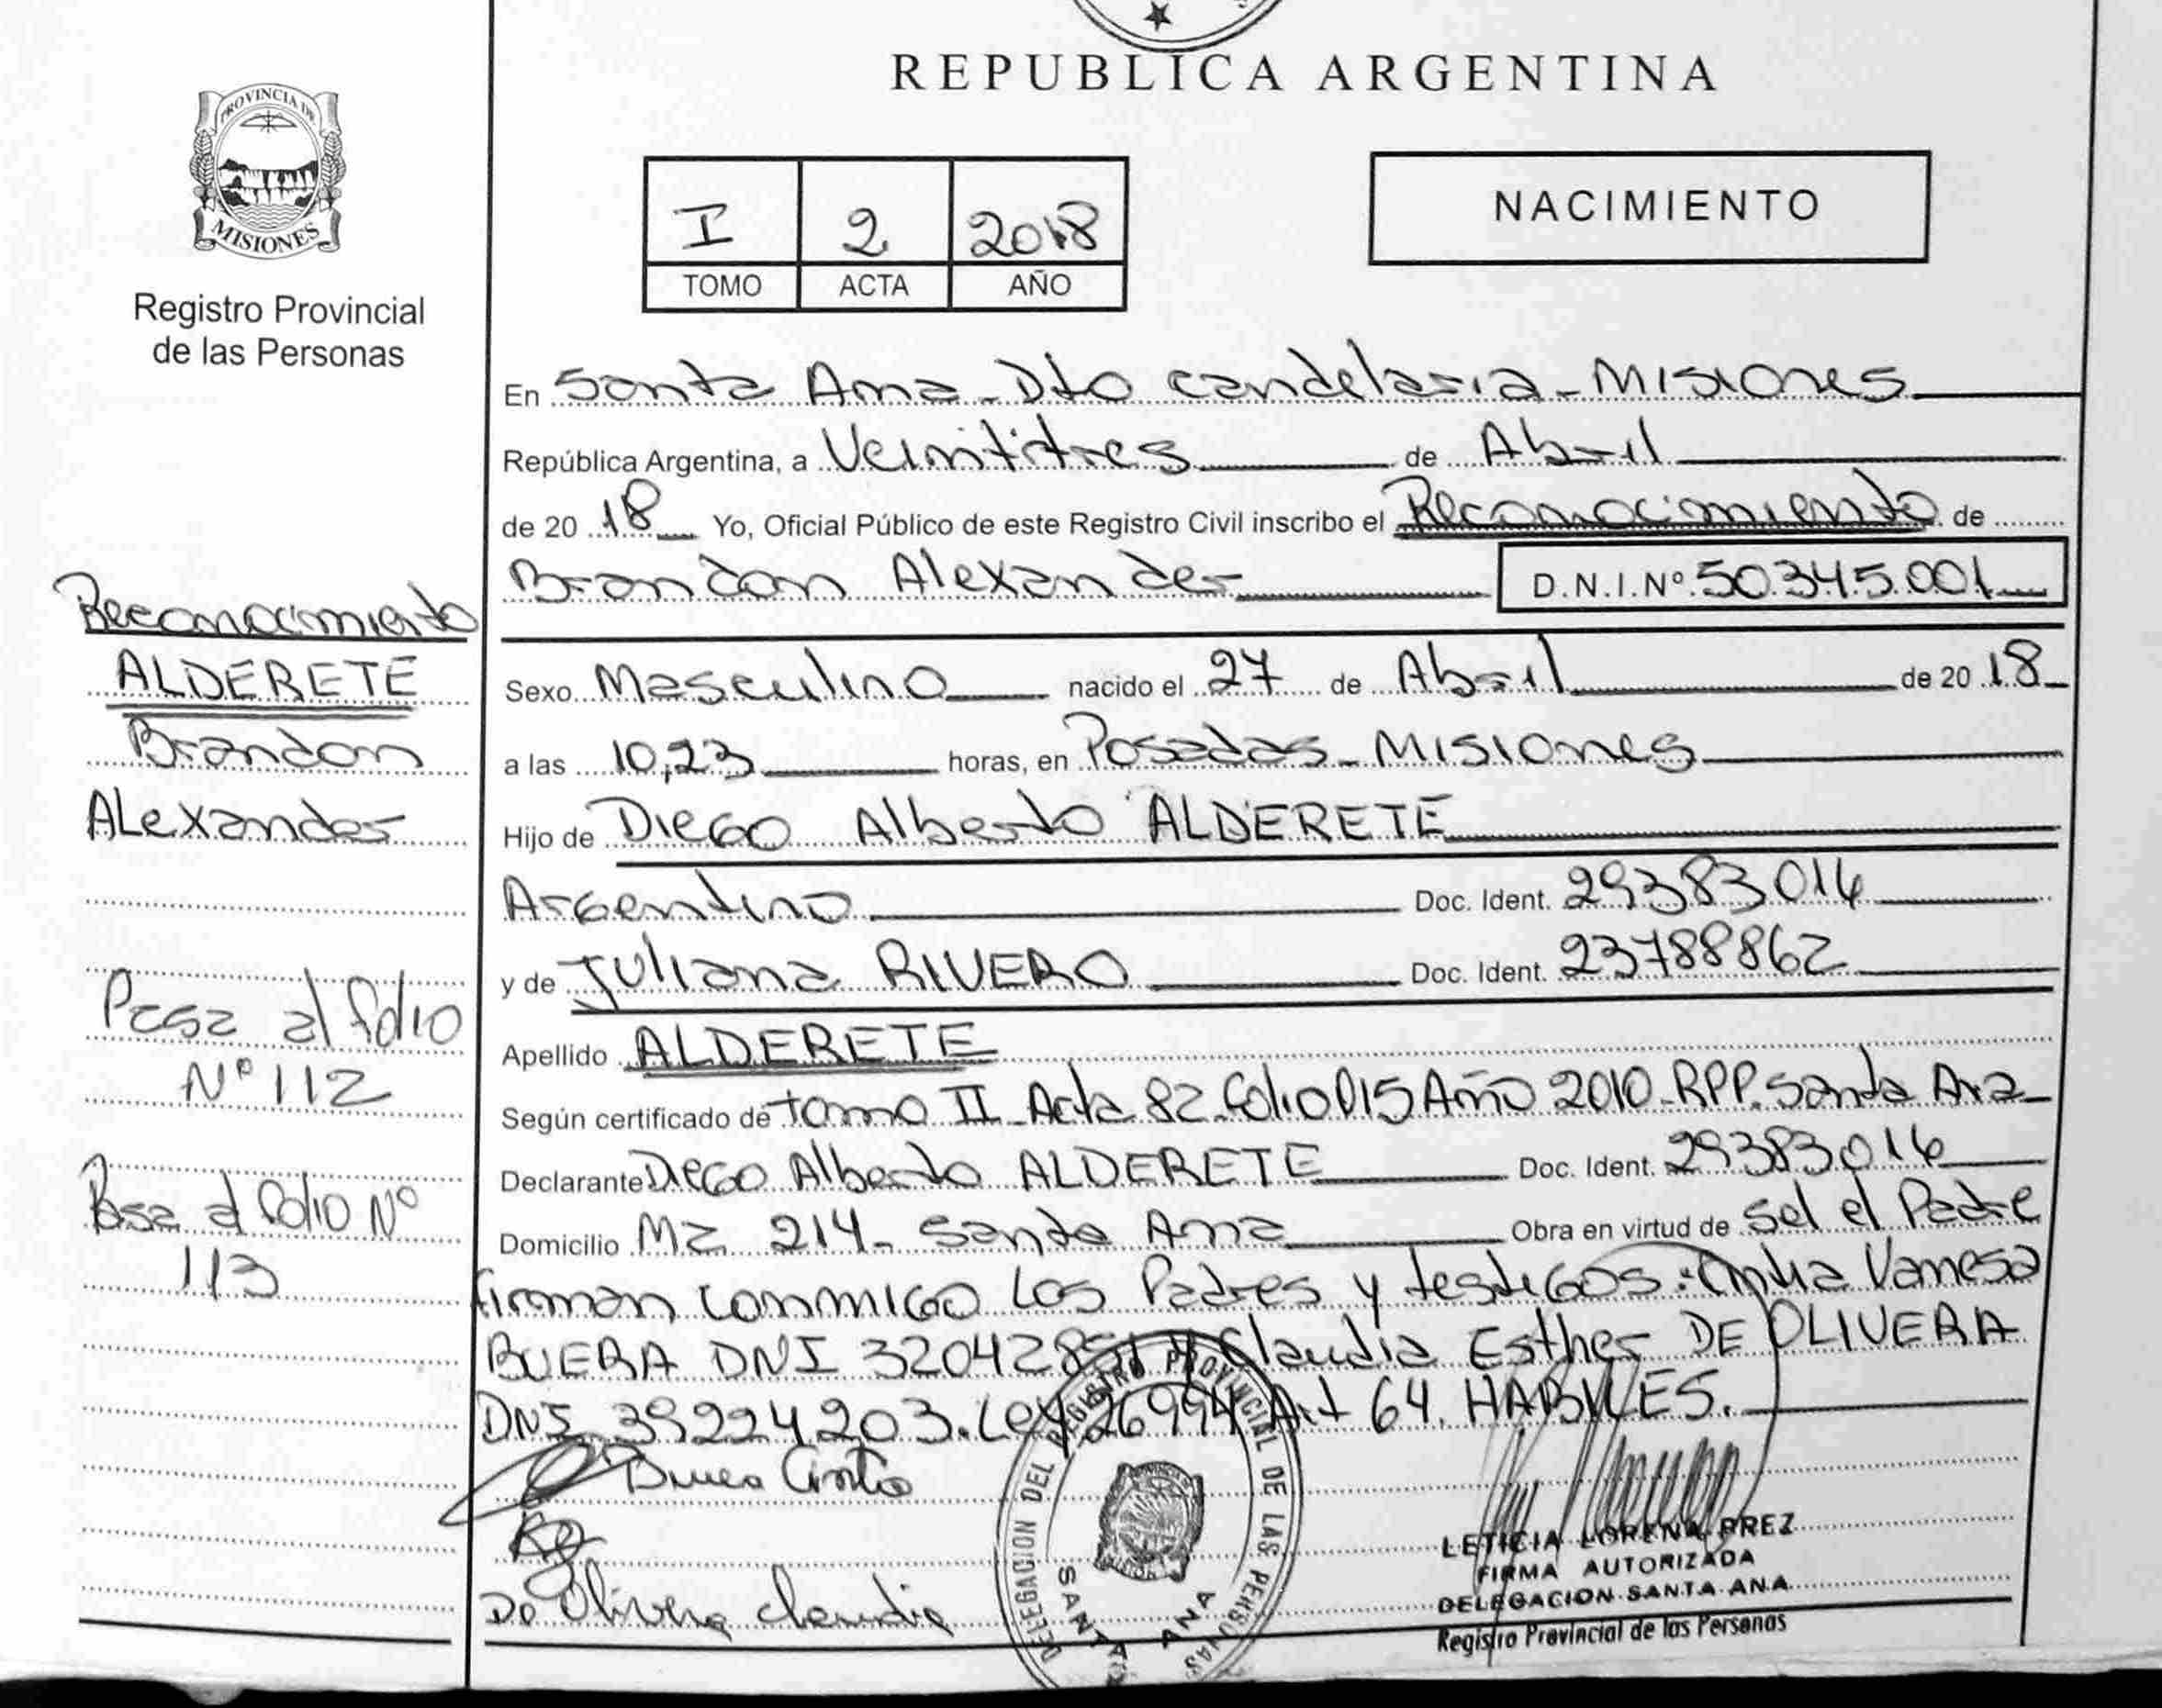 REPUBLICA ARGENTINA
PROVINCIA DE
MISIONES
Registro Provincial
de las Personas
I 2 2018
TOMO ACTA AÑO
NACIMIENTO
En Santa Ana - Dto Candelaria - Misiones
República Argentina, a Veintitres de Abril
de 20 18 Yo, Oficial Público de este Registro Civil inscribo el Reconocimiento de
Brandon Alexander D.N.I.Nº 50.345.001
Sexo Masculino nacido el 27 de Abril de 20 18
a las 10,23 horas, en Posadas - Misiones
Hijo de Diego Alberto ALDERETE
Argentino Doc. Ident. 29383014
y de Juliana RIVERO Doc. Ident. 23788862
Apellido ALDERETE
Según certificado de tomo II Acta 82 folio 015 Año 2010 - RPP. Santa Ana
Declarante Diego Alberto ALDERETE Doc. Ident. 29383014
Domicilio Mz 214 - Santa Ana Obra en virtud de Sel el Padre
firman conmigo Los Padres y testigos: Cintia Vanesa
BUERA DNI Claudia Esther DE OLIVERA
DNI 39224203. Ley 26994 Art 64. HABILES.
Reconocimiento
ALDERETE
Brandon
ALexander
Pasa al folio
Nº 112
Pasa al folio Nº
113
Buera Cintia
De Olivera Claudia
DELEGACION DEL REGISTRO PROVINCIAL DE LAS PERSONAS
SANTA ANA
LETICIA LORENA PREZ
FIRMA AUTORIZADA
DELEGACION SANTA ANA
Registro Provincial de las Personas